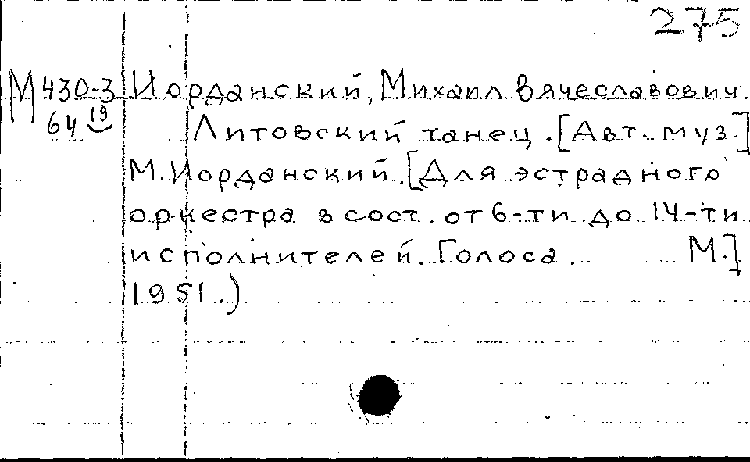 275
М 430-3 Иорданский, Михаил Вячеславович.
64 19 Литовский танец. [Авт. муз.]
М. Иорданский. [Для эстрадного
оркестра в сост. от 6-ти до 14-ти
исполнителей. Голоса. М.].
1951.)